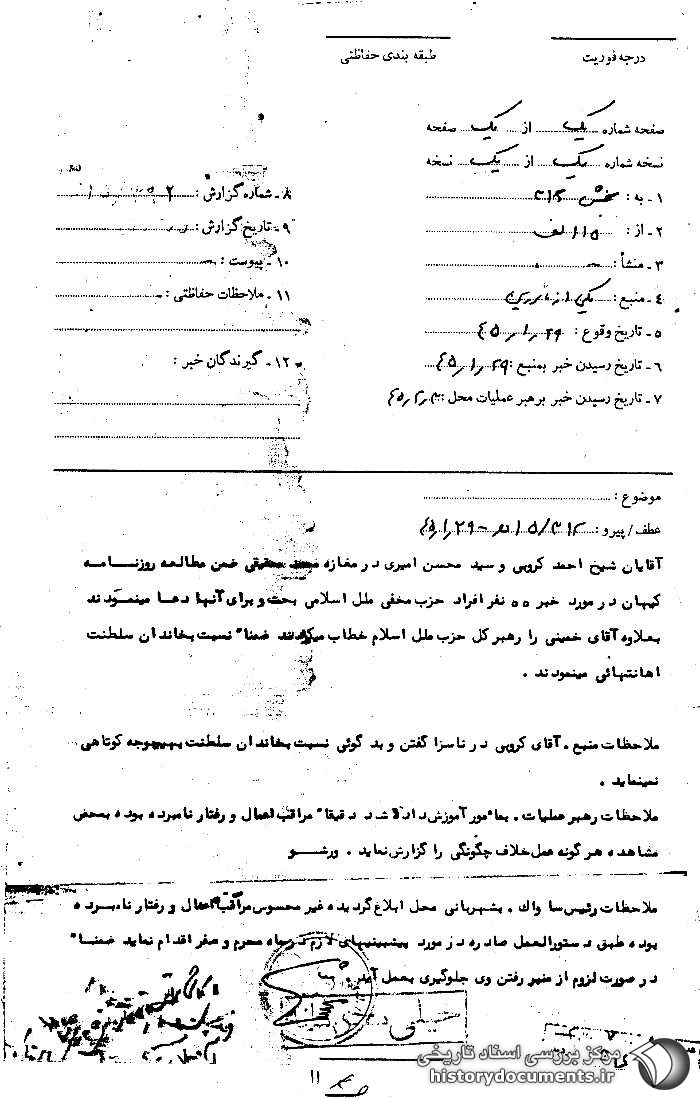 درجه فوریت
طبقه بندی حفاظتی
صفحه شماره یک از یک صفحه
نسخه شماره یک از یک نسخه
۱ - به : بخش ۳۱۲
۲ - از : ۱۱۵ الف
۳ - منشأ :
۴ - منبع : یکی از
۵ - تاریخ وقوع : ۴۵٫۱٫۲۹
۶ - تاریخ رسیدن خبر بمنبع : ۴۵٫۱٫۲۹
۷ - تاریخ رسیدن خبر برهبر عملیات محل :
۸ - شماره گزارش :
۹ - تاریخ گزارش :
۱۰ - پیوست :
۱۱ - ملاحظات حفاظتی :
۱۲ - گیرندگان خبر :
موضوع :
عطف / پیرو :
آقایان شیخ احمد کروبی و سید محسن امیری در مغازه محمد حقیقی ضمن مطالعه روزنامه
کیهان در مورد خبر ۵۵ نفر افراد حزب مخفی ملل اسلامی بحث و برای آنها دعا مینمودند
بعلاوه آقای خمینی را رهبر کل حزب ملل اسلام خطاب میکردند ضمناً نسبت بخاندان سلطنت
اهانتهائی مینمودند .
ملاحظات منبع . آقای کروبی در ناسزا گفتن و بد گوئی نسبت بخاندان سلطنت بهیچوجه کوتاهی
نمینماید .
ملاحظات رهبر عملیات . بمأمور آموزش داده شد دقیقاً مراقب اعمال و رفتار نامبرده بوده بمحض
مشاهده هر گونه عمل خلاف چگونگی را گزارش نماید . ورشو
ملاحظات رئیس ساواک . بشهربانی محل ابلاغ گردیده غیر محسوس مراقب اعمال و رفتار نامبرده
بوده طبق دستورالعمل صادره در مورد پیشبینیهای لازم در ماه محرم و صفر اقدام نماید ضمناً
در صورت لزوم از منبر رفتن وی جلوگیری بعمل آید .
مرکز بررسی اسناد تاریخی
historydocuments.ir